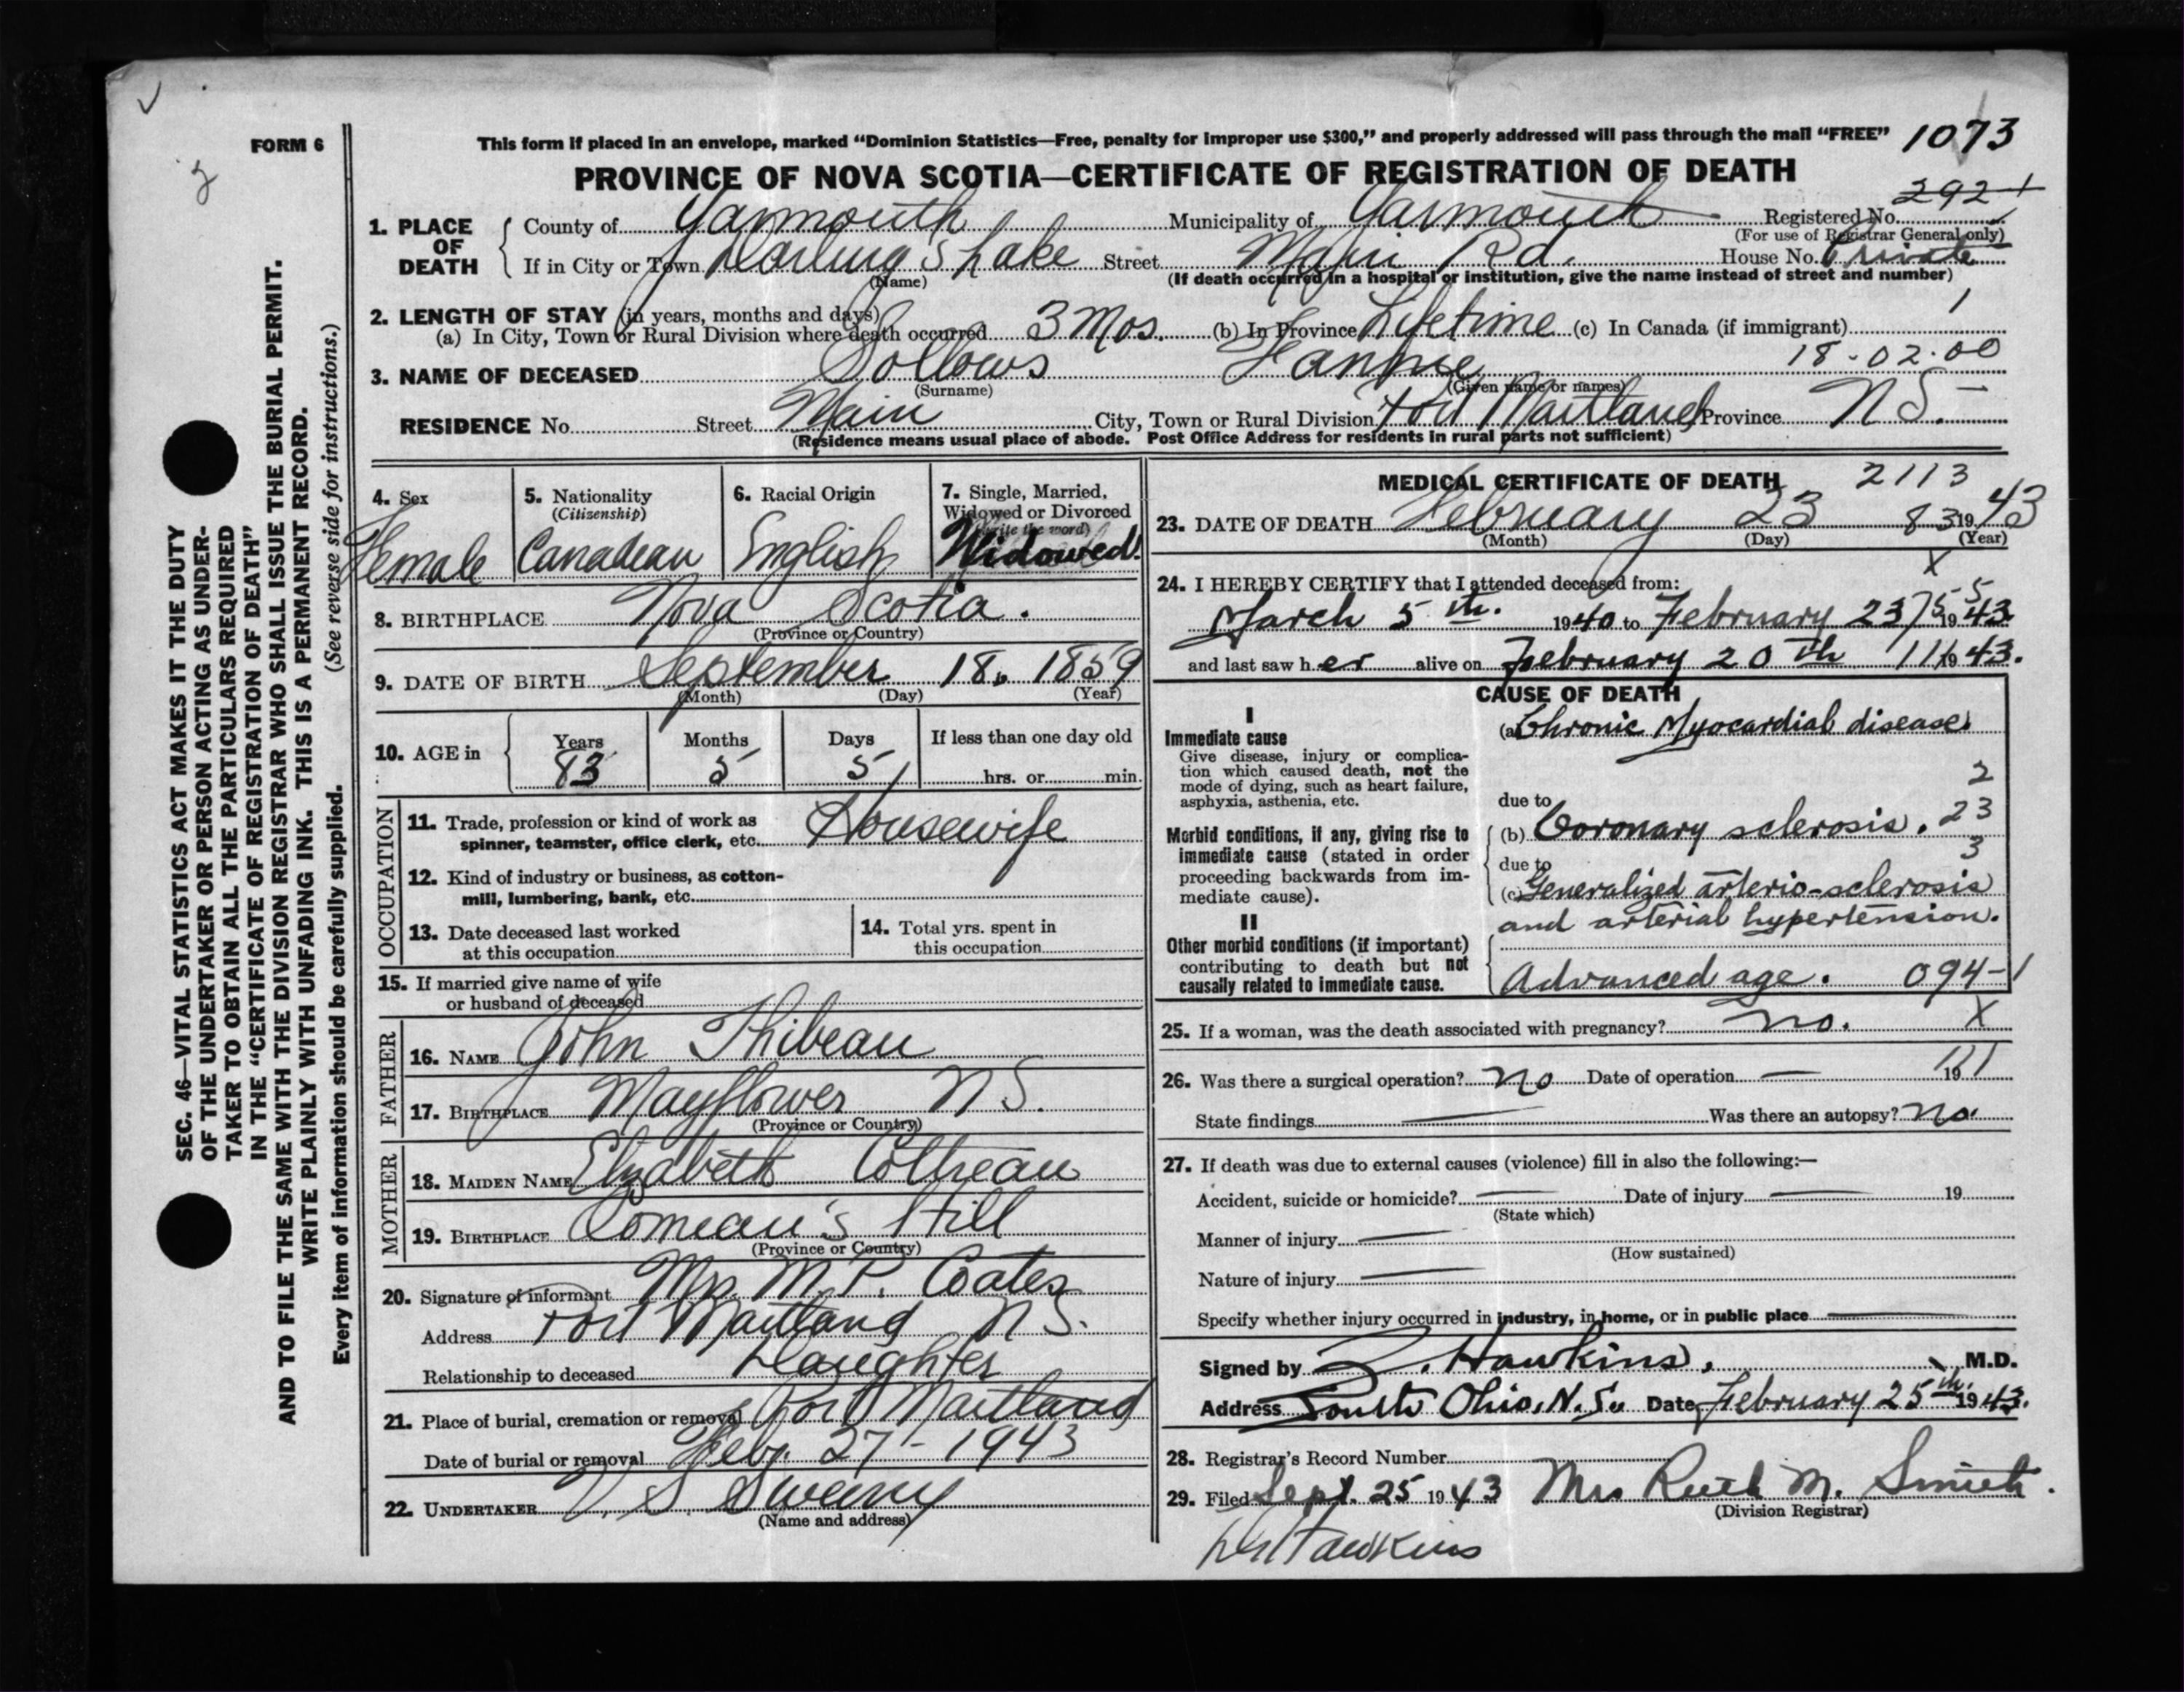 FORM 6
This form if placed in an envelope, marked “Dominion Statistics—Free, penalty for improper use $300,” and properly addressed will pass through the mail “FREE” 1073
PROVINCE OF NOVA SCOTIA—CERTIFICATE OF REGISTRATION OF DEATH
2921
1. PLACE OF DEATH
County of Yarmouth Municipality of Yarmouth Registered No.
(For use of Registrar General only)
If in City or Town Darling's Lake Street Main Rd. House No. Private
(Name) (If death occurred in a hospital or institution, give the name instead of street and number)
2. LENGTH OF STAY (in years, months and days) 1
(a) In City, Town or Rural Division where death occurred 3 Mos. (b) In Province Lifetime (c) In Canada (if immigrant)
18-02-00
3. NAME OF DECEASED Sollows Fannie
(Surname) (Given name or names)
RESIDENCE No. Street Main City, Town or Rural Division Port Maitland Province N S.
(Residence means usual place of abode. Post Office Address for residents in rural parts not sufficient)
4. Sex Female
5. Nationality (Citizenship) Canadian
6. Racial Origin English
7. Single, Married, Widowed or Divorced (write the word) Widowed
8. BIRTHPLACE Nova Scotia.
(Province or Country)
9. DATE OF BIRTH September 18, 1859
(Month) (Day) (Year)
10. AGE in Years 83 Months 5 Days 5 If less than one day old
hrs. or min.
OCCUPATION
11. Trade, profession or kind of work as
spinner, teamster, office clerk, etc. Housewife
12. Kind of industry or business, as cotton-
mill, lumbering, bank, etc.
13. Date deceased last worked
at this occupation
14. Total yrs. spent in
this occupation
15. If married give name of wife
or husband of deceased
FATHER
16. NAME John Thibeau
17. BIRTHPLACE Mayflower N S.
(Province or Country)
MOTHER
18. MAIDEN NAME Elizabeth
19. BIRTHPLACE Comeau's Hill
(Province or Country)
20. Signature of informant Mrs. M. P. Coates
Address Port Maitland N S.
Relationship to deceased Daughter
21. Place of burial, cremation or removal Port Maitland
Date of burial or removal Feb. 27 - 1943
22. UNDERTAKER V. S. Sweeny
(Name and address)
MEDICAL CERTIFICATE OF DEATH 2113
23. DATE OF DEATH February 23 83 1943
(Month) (Day) (Year)
X
24. I HEREBY CERTIFY that I attended deceased from:
March 5 th. 1940 to February 23 1943
and last saw her alive on February 20 th 1943.
CAUSE OF DEATH
I
Immediate cause
Give disease, injury or complica-
tion which caused death, not the
mode of dying, such as heart failure,
asphyxia, asthenia, etc.
(a) Chronic Myocardial disease.
2
due to
Morbid conditions, if any, giving rise to
immediate cause (stated in order
proceeding backwards from im-
mediate cause).
(b) Coronary sclerosis. 23
3
due to
(c) Generalized arterio-sclerosis
and arterial hypertension.
II
Other morbid conditions (if important)
contributing to death but not
causally related to immediate cause.
Advanced age. 094-1
25. If a woman, was the death associated with pregnancy? no. X
26. Was there a surgical operation? no Date of operation — 19
State findings — Was there an autopsy? no.
27. If death was due to external causes (violence) fill in also the following:—
Accident, suicide or homicide? — Date of injury — 19
(State which)
Manner of injury —
(How sustained)
Nature of injury —
Specify whether injury occurred in industry, in home, or in public place —
Signed by Z. Hawkins. M.D.
Address South Ohio, N.S. Date February 25 th. 1943.
28. Registrar's Record Number
29. Filed Sept. 25 1943 Mrs Ruth M. Smith.
(Division Registrar)
Dr Hawkins
SEC. 46—VITAL STATISTICS ACT MAKES IT THE DUTY
OF THE UNDERTAKER OR PERSON ACTING AS UNDER-
TAKER TO OBTAIN ALL THE PARTICULARS REQUIRED
IN THE “CERTIFICATE OF REGISTRATION OF DEATH”
AND TO FILE THE SAME WITH THE DIVISION REGISTRAR WHO SHALL ISSUE THE BURIAL PERMIT.
WRITE PLAINLY WITH UNFADING INK. THIS IS A PERMANENT RECORD.
Every item of information should be carefully supplied. (See reverse side for instructions.)